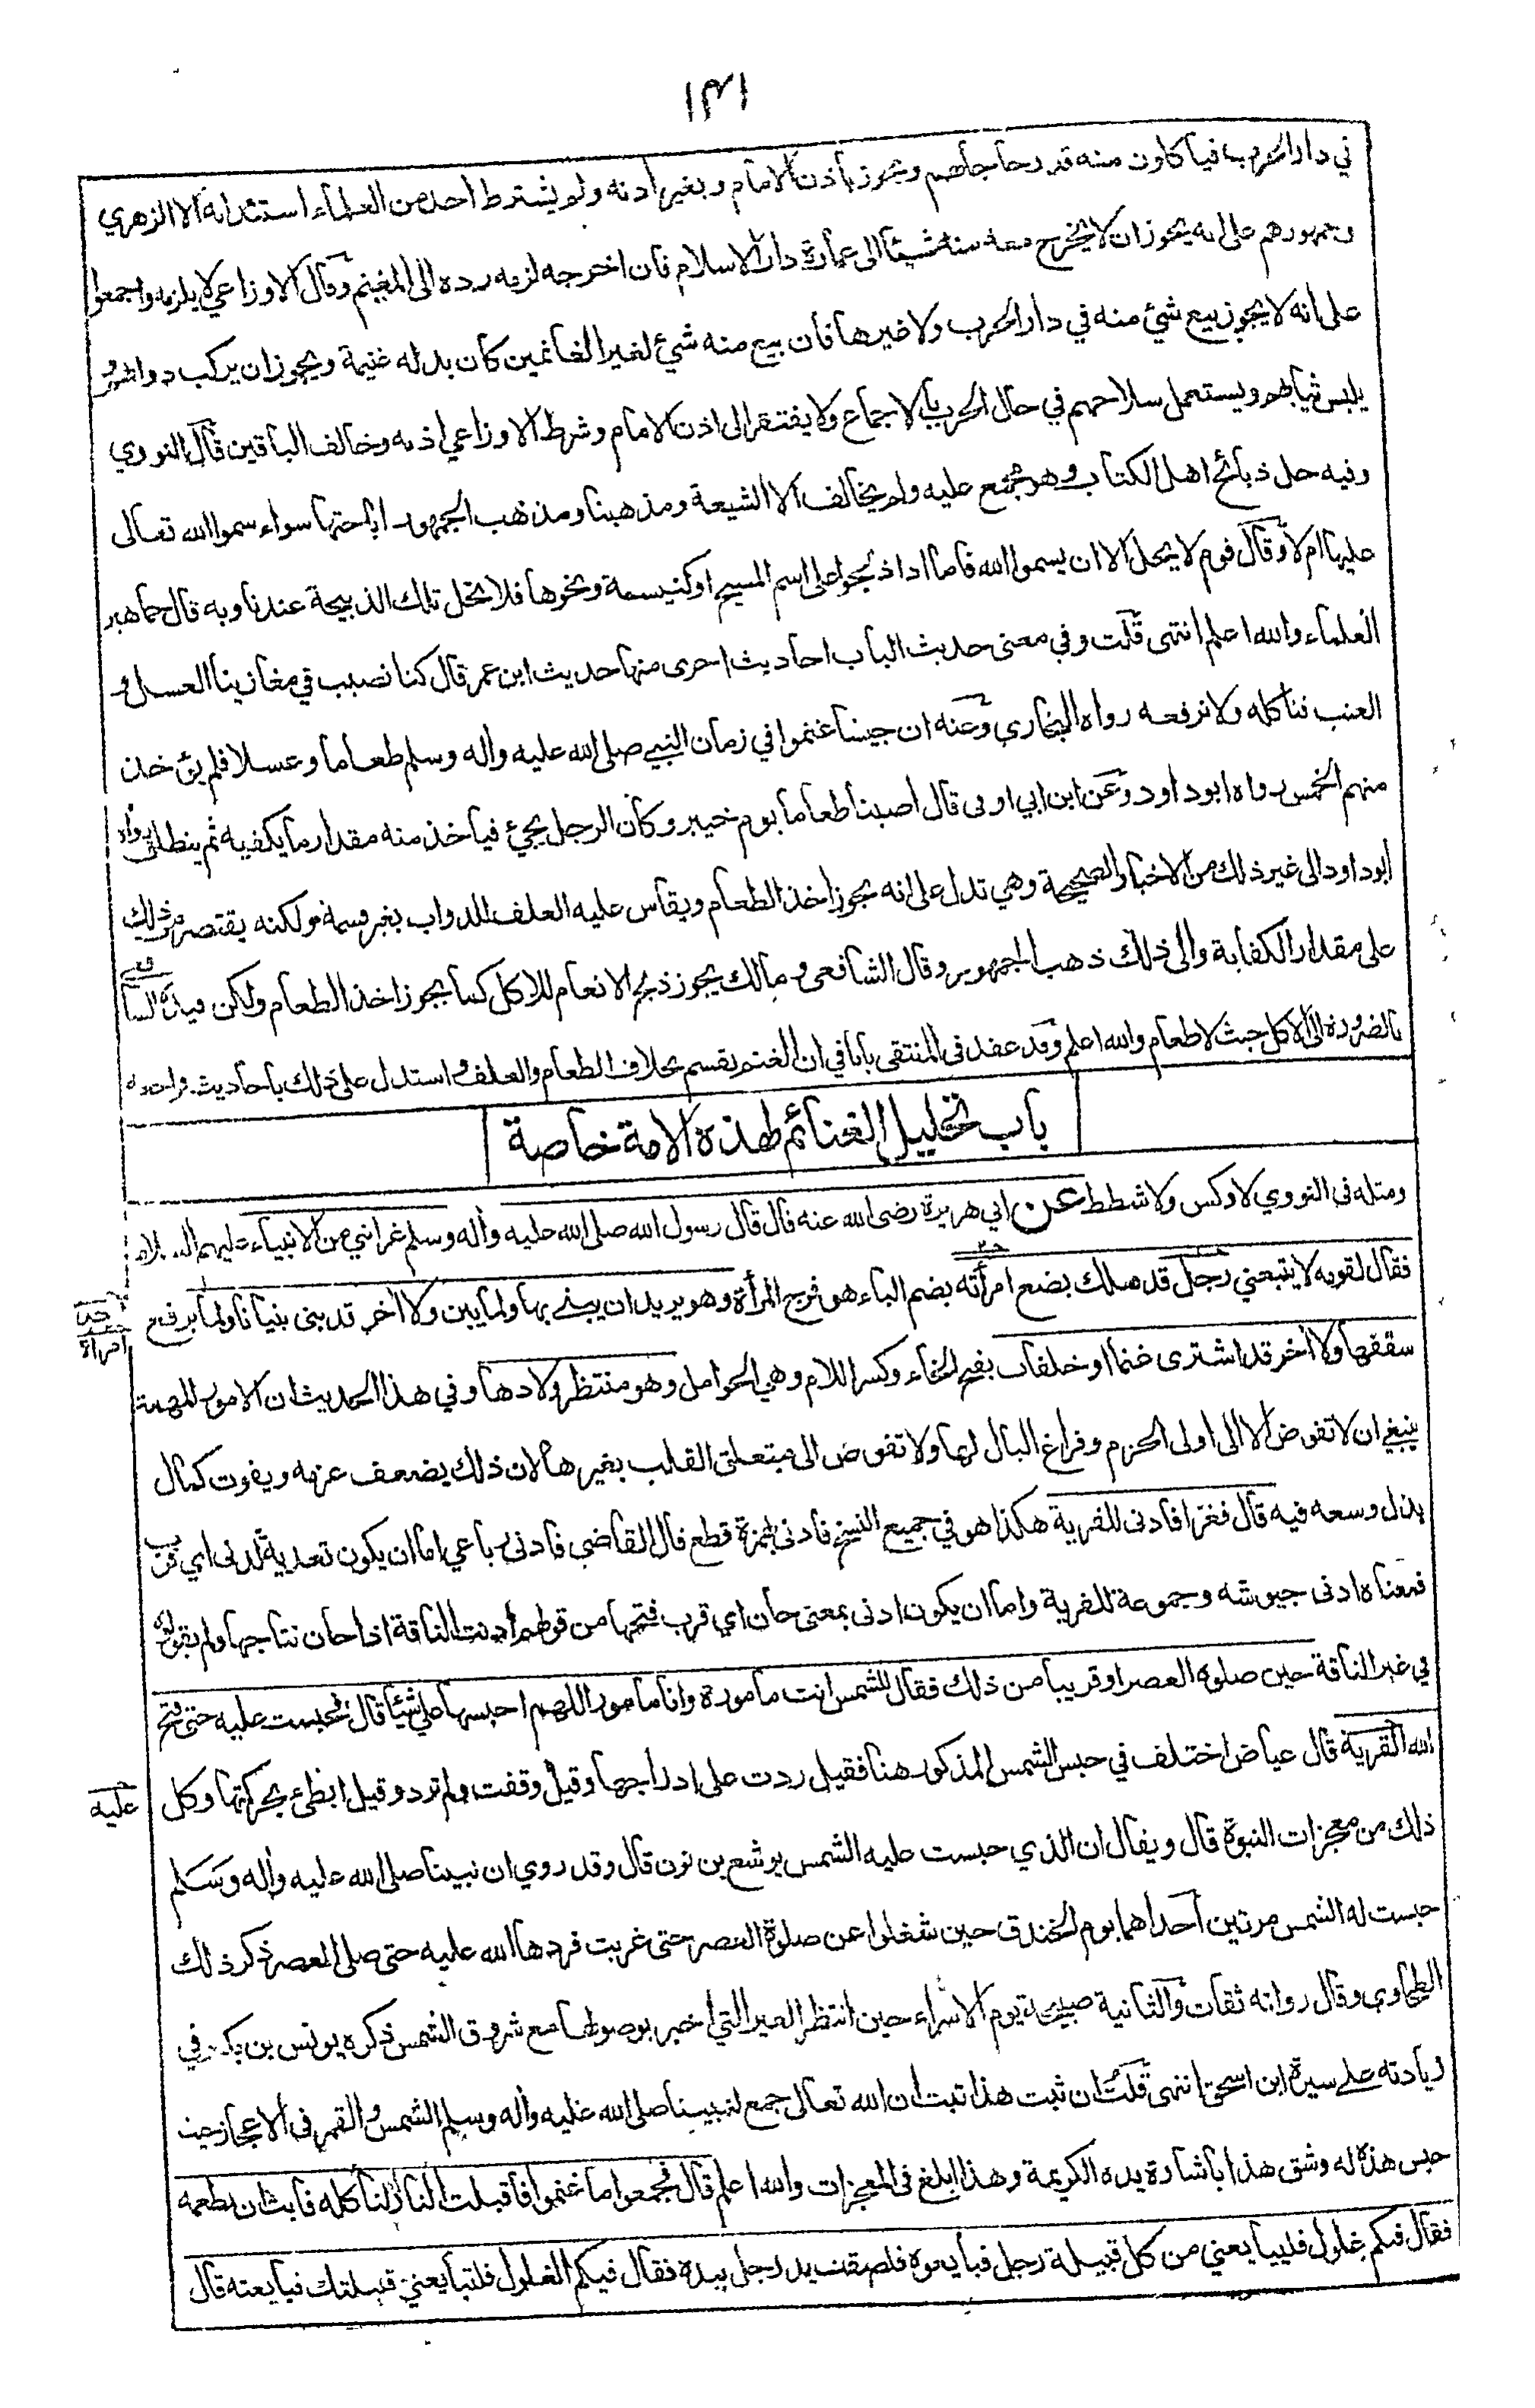 ١٣١
في دار الحرب فيأكلون منه قدر حاجاتهم ويجوز بأذن الامام وبغير اذنه ولم يشترط احد من العلماء استئذانه الا الزهري
وجمهورهم على انه يجوز ان لا يخرج معه منه شيئا الى عمارة دار الاسلام فان اخرجه لزمه رده الى المغنم وقال الاوزاعي لا يلزمه واجمعوا
على انه لا يجوز بيع شئ منه في دار الحرب ولا غيرها فان بيع منه شئ لغير الغانمين كان بدله غنيمة ويجوز ان يركب دوابهم و
يلبس ثيابهم ويستعمل سلاحهم في حال الحرب بالاجماع ولا يفتقر الى اذن الامام وشرط الاوزاعي اذنه وخالف الباقين قال النووي
وفيه حل ذبائح اهل الكتاب وهو مجمع عليه ولم يخالف الا الشيعة ومذهبنا ومذهب الجمهور اباحتها سواء سموا الله تعالى
عليها ام لا وقال قوم لا يحل الا ان يسموا الله فاما اذا ذبحوا على اسم المسيح او كنيسة ونحوها فلا تحل تلك الذبيحة عندنا وبه قال جماهير
العلماء والله اعلم انتهى قلت وفي معنى حديث الباب احاديث اخرى منها حديث ابن عمر قال كنا نصيب في مغازينا العسل و
العنب فنأكله ولا نرفعه رواه البخاري وعنه ان جيشا غنموا في زمان النبي صلى الله عليه وأله وسلم طعاما وعسلا فلم يؤخذ
منهم الخمس رواه ابو داود وعن ابن ابي اوفى قال اصبنا طعاما يوم خيبر وكان الرجل يجئ فيأخذ منه مقدار ما يكفيه ثم ينطلق رواه
ابو داود الى غير ذلك من الاخبار الصحيحة وهي تدل على انه يجوز اخذ الطعام ويقاس عليه العلف للدواب بغير قسمة ولكنه يقتصر من ذلك
على مقدار الكفاية والى ذلك ذهب الجمهور وقال الشافعي ومالك يجوز ذبح الانعام للاكل كما يجوز اخذ الطعام ولكن قيده الشافعي
بالضرورة الى الاكل حيث لا طعام والله اعلم وقد عقد في المنتقى بابا في ان الغنم تقسم بخلاف الطعام والعلف واستدل على ذلك بأحاديث فراجعه
باب تحليل الغنائم لهذه الامة خاصة
ومثله في النووي لا وكس ولا شطط عن ابي هريرة رضى الله عنه قال قال رسول الله صلى الله عليه وأله وسلم غزا نبي من الانبياء عليهم السلام
فقال لقومه لا يتبعني رجل قد ملك بضع امرأته بضم الباء هو فرج المرأة وهو يريد ان يبني بها ولما يبن ولا أخر قد بنى بنيانا ولما يرفع
سقفها ولا أخر قد اشترى غنما او خلفات بفتح الخاء وكسر اللام وهي الحوامل وهو منتظر ولادها وفي هذا الحديث ان الامور المهمة
ينبغي ان لا تفوض الا الى اولى الحزم وفراغ البال لها ولا تفوض الى متعلق القلب بغيرها لان ذلك يضعف عزمه ويفوت كمال
بذل وسعه فيه قال فغزا فادنى للقرية هكذا هو في جميع النسخ فادنى بهمزة قطع قال القاضي فادنى رباعي اما ان يكون تعدية لدنى اي قرب
فمعناه ادنى جيوشه وجموعه للقرية واما ان يكون ادنى بمعنى حان اي قرب فتحها من قولهم ادنت الناقة اذا حان نتاجها ولم يقولوه
في غير الناقة حين صلوة العصر او قريبا من ذلك فقال للشمس انت مأمورة وانا مأمور اللهم احبسها علي شيئا قال فحبست عليه حتى فتح
الله القرية قال عياض اختلف في حبس الشمس المذكور هنا فقيل ردت على ادراجها وقيل وقفت ولم ترد وقيل ابطئ بحركتها وكل
عليه
ذلك من معجزات النبوة قال ويقال ان الذي حبست عليه الشمس يوشع بن نون قال وقد روي ان نبينا صلى الله عليه وأله وسلم
حبست له الشمس مرتين أحداهما يوم الخندق حين شغلوا عن صلوة العصر حتى غربت فردها الله عليه حتى صلى العصر ذكر ذلك
الطحاوي وقال رواته ثقات والثانية صبيحة يوم الاسراء حين انتظر العير التي اخبر بوصولها مع شروق الشمس ذكره يونس بن بكير في
زيادته على سيرة ابن اسحق انتهى قلت ان ثبت هذا ثبت ان الله تعالى جمع لنبينا صلى الله عليه وأله وسلم الشمس والقمر في الاعجاز حيث
حبس هذه له وشق هذا باشارة يده الكريمة وهذا ابلغ في المعجزات والله اعلم قال فجمعوا ما غنموا فاقبلت النار لتأكله فابت ان تطعمه
فقال فيكم غلول فليبايعني من كل قبيلة رجل فبايعوه فلصقت يد رجل بيده فقال فيكم الغلول فلتبايعني قبيلتك فبايعته قال